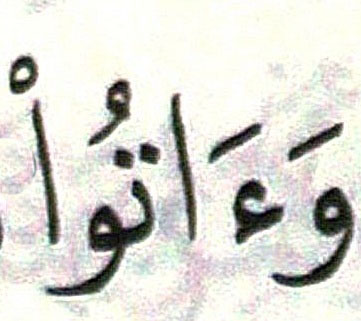 وَءَاتُوا۟